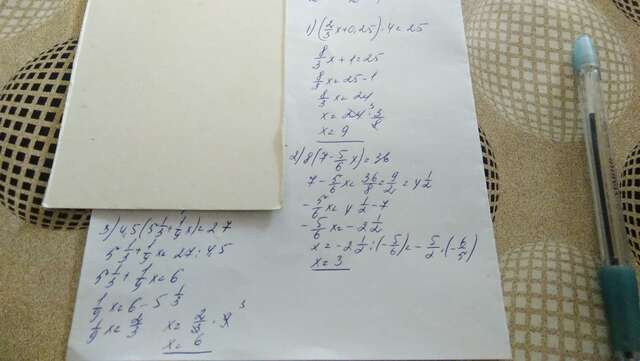 1) (2/3 x + 0,25) · 4 = 25
8/3 x + 1 = 25
8/3 x = 25 - 1
8/3 x = 24
x = 24 · 3/8
x = 9
2) 8(7 - 5/6 x) = 36
7 - 5/6 x = 36/8 = 9/2 = 4 1/2
- 5/6 x = 4 1/2 - 7
- 5/6 x = - 2 1/2
x = - 2 1/2 : (- 5/6) = - 5/2 · (- 6/5)
x = 3
3) 4,5 (5 1/3 + 1/9 x) = 27
5 1/3 + 1/9 x = 27 : 4,5
5 1/3 + 1/9 x = 6
1/9 x = 6 - 5 1/3
1/9 x = 2/3 x = 2/3 · 9 3
x = 6